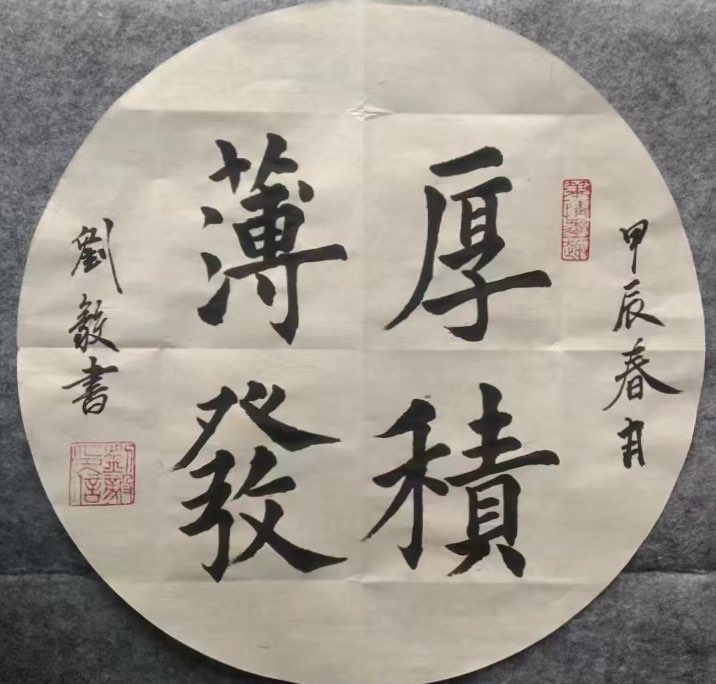 甲辰春月
厚積
薄發
劉毅書
劉毅